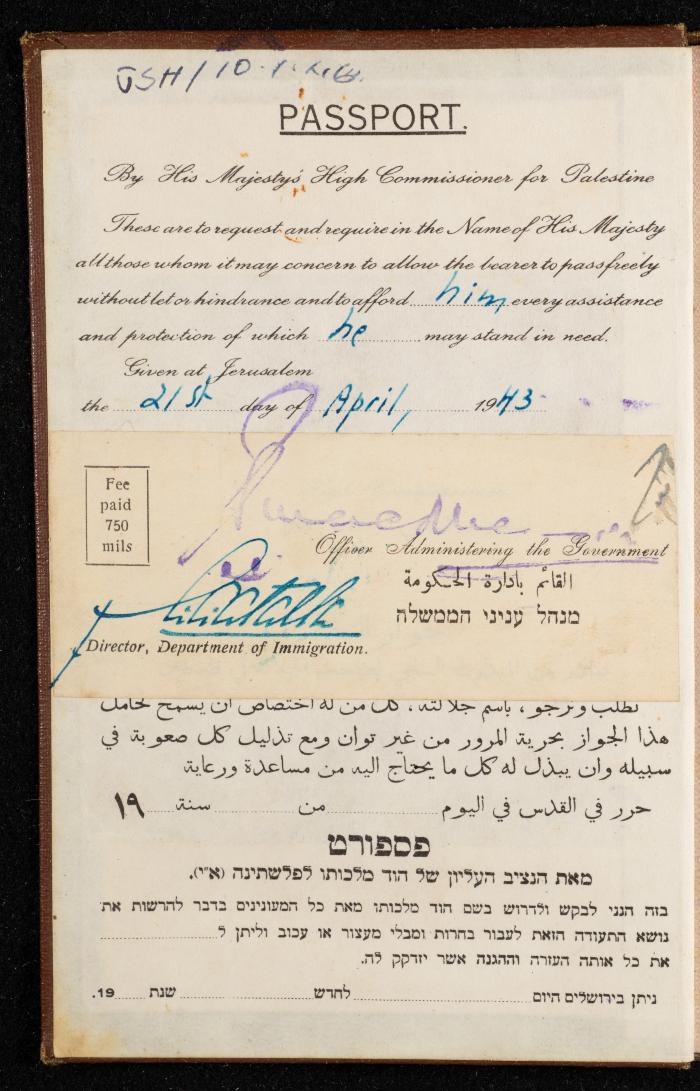 PASSPORT.
By His Majesty's High Commissioner for Palestine
These are to request and require in the Name of His Majesty
all those whom it may concern to allow the bearer to pass freely
without let or hindrance and to afford him every assistance
and protection of which he may stand in need.
Given at Jerusalem
the 21st day of April, 1943
Fee
paid
750
mils
Officer Administering the Government
القائم بادارة الحكومة
מנהל עניני הממשלה
Director, Department of Immigration.
نطلب ونرجو، باسم جلالته، كل من له اختصاص ان يسمح لحامل
هذا الجواز بحرية المرور من غير توان ومع تذليل كل صعوبة في
سبيله وان يبذل له كل ما يحتاج اليه من مساعدة ورعاية
حرر في القدس في اليوم من سنة ١٩
פספורט
מאת הנציב העליון של הוד מלכותו לפלשתינה (א״י).
בזה הנני לבקש ולדרוש בשם הוד מלכותו מאת כל המעונינים בדבר להרשות את
נושא התעודה הזאת לעבור בחרות ומבלי מעצור או עכוב וליתן ל
את כל אותה העזרה וההגנה אשר יזדקק לה.
ניתן בירושלים היום לחדש שנת 19.